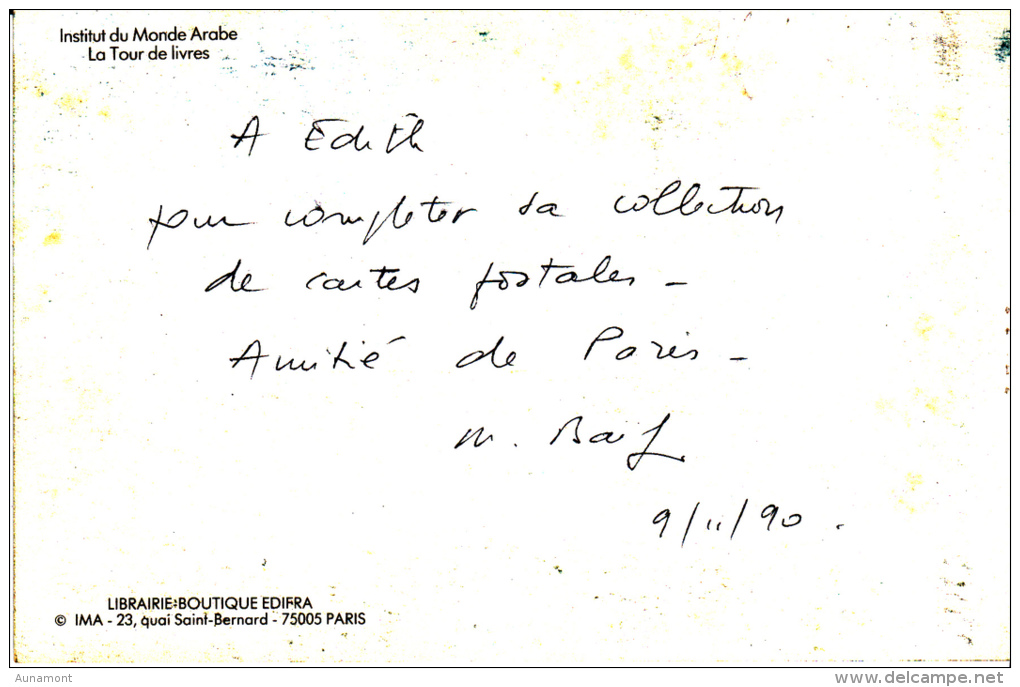 Institut du Monde Arabe
La Tour de livres
A Edith
pour completer sa collection
de cartes postales -
Amitié de Paris -
M.
9/11/90.
LIBRAIRIE-BOUTIQUE EDIFRA
© IMA - 23, quai Saint-Bernard - 75005 PARIS
Aunamont
delcampe.net